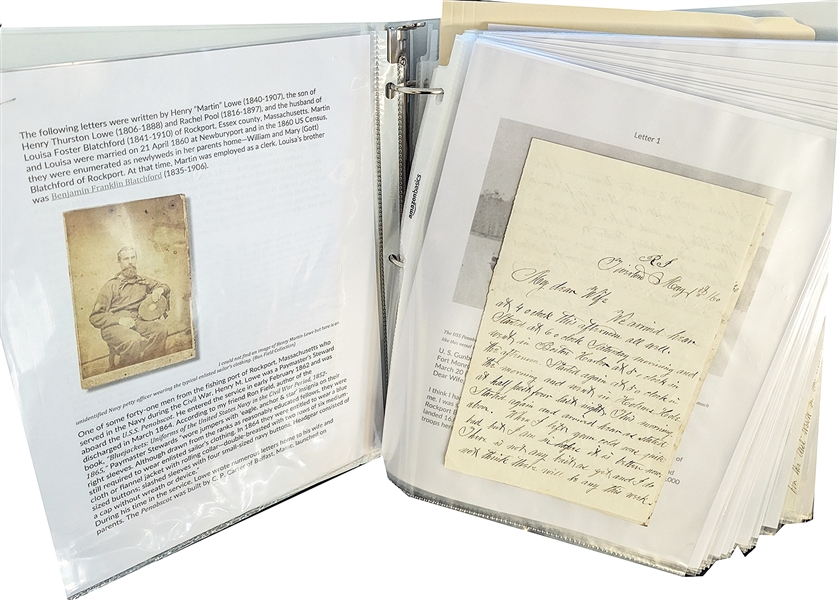 The following letters were written by Henry "Martin" Lowe (1840-1907), the son of
Henry Thurston Lowe (1806-1888) and Rachel Pool (1816-1897), and the husband of
Louisa Foster Blatchford (1841-1910) of Rockport, Essex county, Massachusetts. Martin
and Louisa were married on 21 April 1860 at Newburyport and in the 1860 US Census,
they were enumerated as newlyweds in her parents home—William and Mary (Gott)
Blatchford of Rockport. At that time. Martin was employed as a clerk. Louisa's brother
was Benjamin Franklin Blatchford (1835-1906).
I could not find an image of Henry Martin Lowe but here is an
unidentified Navy petty officer wearing the typical enlisted sailor's clothing. (Ron Field Collection)
One of some forty-one men from the fishing port of Rockport, Massachusetts who
served in the Navy during the Civil War, Henry M. Lowe was a Paymaster's Steward
aboard the U.S.S. Penobscot. He entered the service in early February 1862 and was
discharged in March 1864. According to my friend Ron Field, author of the
book, "Bluejackets: Uniforms of the United States Navy in the Civil War Period, 1852-
1865," Paymaster Stewards "wore jumpers with 'eagle, anchor & star' insignia on their
right sleeves. Although drawn from the ranks as reasonably educated fellows, they were
still required to wear enlisted sailor's clothing. In 1864 they were entitled to wear a
cloth or flannel jacket with rolling collar—double-breasted with two rows of six medium-
sized buttons; slashed sleeves with four small-sized navy buttons. Headgear consisted of
a cap without wreath or device."
During his time in the service, Lowe wrote numerous letters home to his wife and
parents. The Penobscot was built by C. P. Carter of Belfast, Maine, launched on
amazonbasics
Letter 1
The USS Penobs
like this would
U. S. Gunb
Fort Monr
March 20
Dear Wife
I think I ha
me, I
Rockport B
landed 16
troops her
,000
and
much
R I
My dear Wife
We arrived here
at 4 o'clock this afternoon all well.
Started at 6 o'clock Saturday morning and
in Boston Harbor at 5 o'clock in
the afternoon. Started again at 5 o'clock in
the morning and in Holmes Hole
at half past last night. This morning
Started again and arrived here as stated
above. When I left your cold was quite
bad but I am in hopes it is better now.
There is not any here as yet and I do
not think there will be any this week.